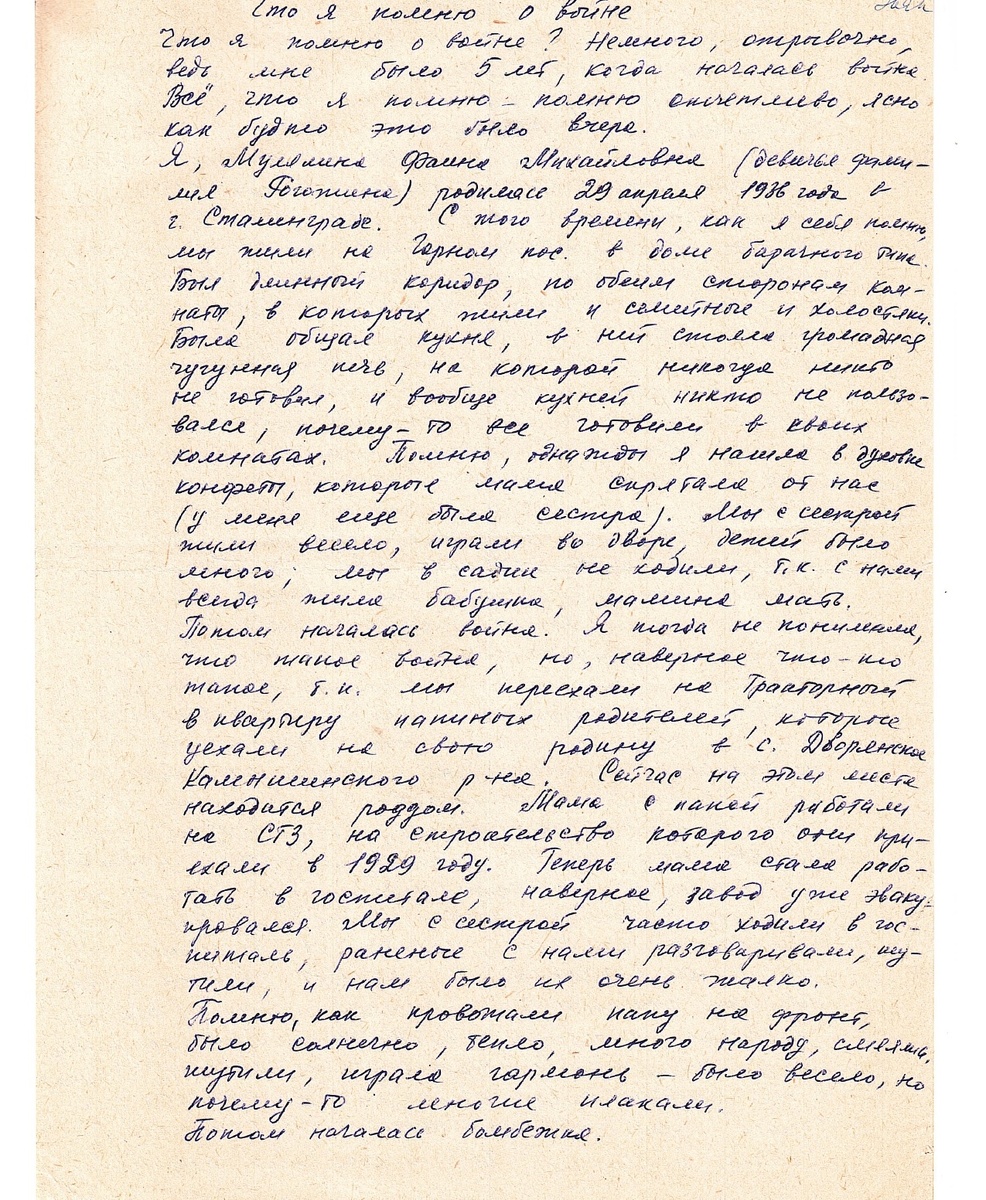 Что я помню о войне
Что я помню о войне? Немного, отрывочно,
ведь мне было 5 лет, когда началась война.
Всё, что я помню – помню отчетливо, ясно
как будто это было вчера.
Я, Фаина Михайловна (девичья фами-
лия Рогожина) родилась 29 апреля 1936 года в
г. Сталинграде. С того времени, как я себя помню,
мы жили на Горном пос. в доме барачного типа.
Был длинный коридор, по обеим сторонам ком-
наты, в которых жили и семейные и холостяки.
Была общая кухня, в ней стояла громадная
чугунная печь, на которой никогда никто
не готовил, и вообще кухней никто не пользо-
вался, почему-то все готовили в своих
комнатах. Помню, однажды я нашла в духовке
конфеты, которые мама спрятала от нас
(у меня еще была сестра). Мы с сестрой
жили весело, играли во дворе, детей было
много; мы в садик не ходили, т.к. с нами
всегда жила бабушка, мамина мать.
Потом началась война. Я тогда не понимала,
что такое война, но, наверное что-то
такое, т.к. мы переехали на Тракторный
в квартиру папиных родителей, которые
уехали на свою родину в с. Дворянское
Камышинского р-на. Сейчас на этом месте
находится роддом. Мама с папой работали
на СТЗ, на строительство которого они при-
ехали в 1929 году. Теперь мама стала рабо-
тать в госпитале, наверное, завод уже эваку-
ировался. Мы с сестрой часто ходили в гос-
питаль, раненые с нами разговаривали, шу-
тили, и нам было их очень жалко.
Помню, как провожали папу на фронт,
было солнечно, тепло, много народу, смеялись,
шутили, играла гармонь – было весело, но
почему-то многие плакали.
Потом началась бомбежка.